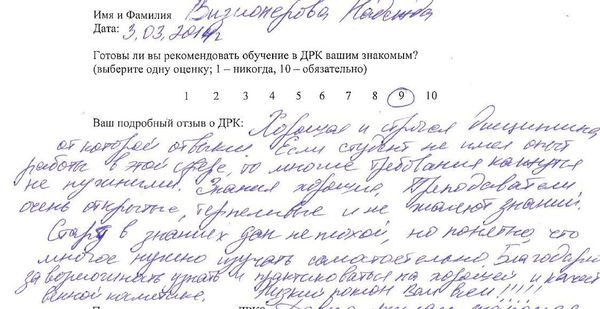 Имя и Фамилия Визионерова Надежда
Дата: 3.03.2014г
Готовы ли вы рекомендовать обучение в ДРК вашим знакомым?
(выберите одну оценку; 1 – никогда, 10 – обязательно)
1 2 3 4 5 6 7 8 9 10
Ваш подробный отзыв о ДРК: Хорошая и строгая дисциплина
от которой отвыкли. Если студент не имел опыт
работы в этой сфере, то многие требования кажутся
не нужными. Знания хорошие, Преподаватели
очень открытые, терпеливые и не жалеют знаний.
Старт в знаниях дан неплохой, но понятно, что
многое нужно изучать самостоятельно. Благодарю
за возможность узнать и практиковаться на хорошей и качест
венной косметике. Низкий поклон Вам всем!!!!!